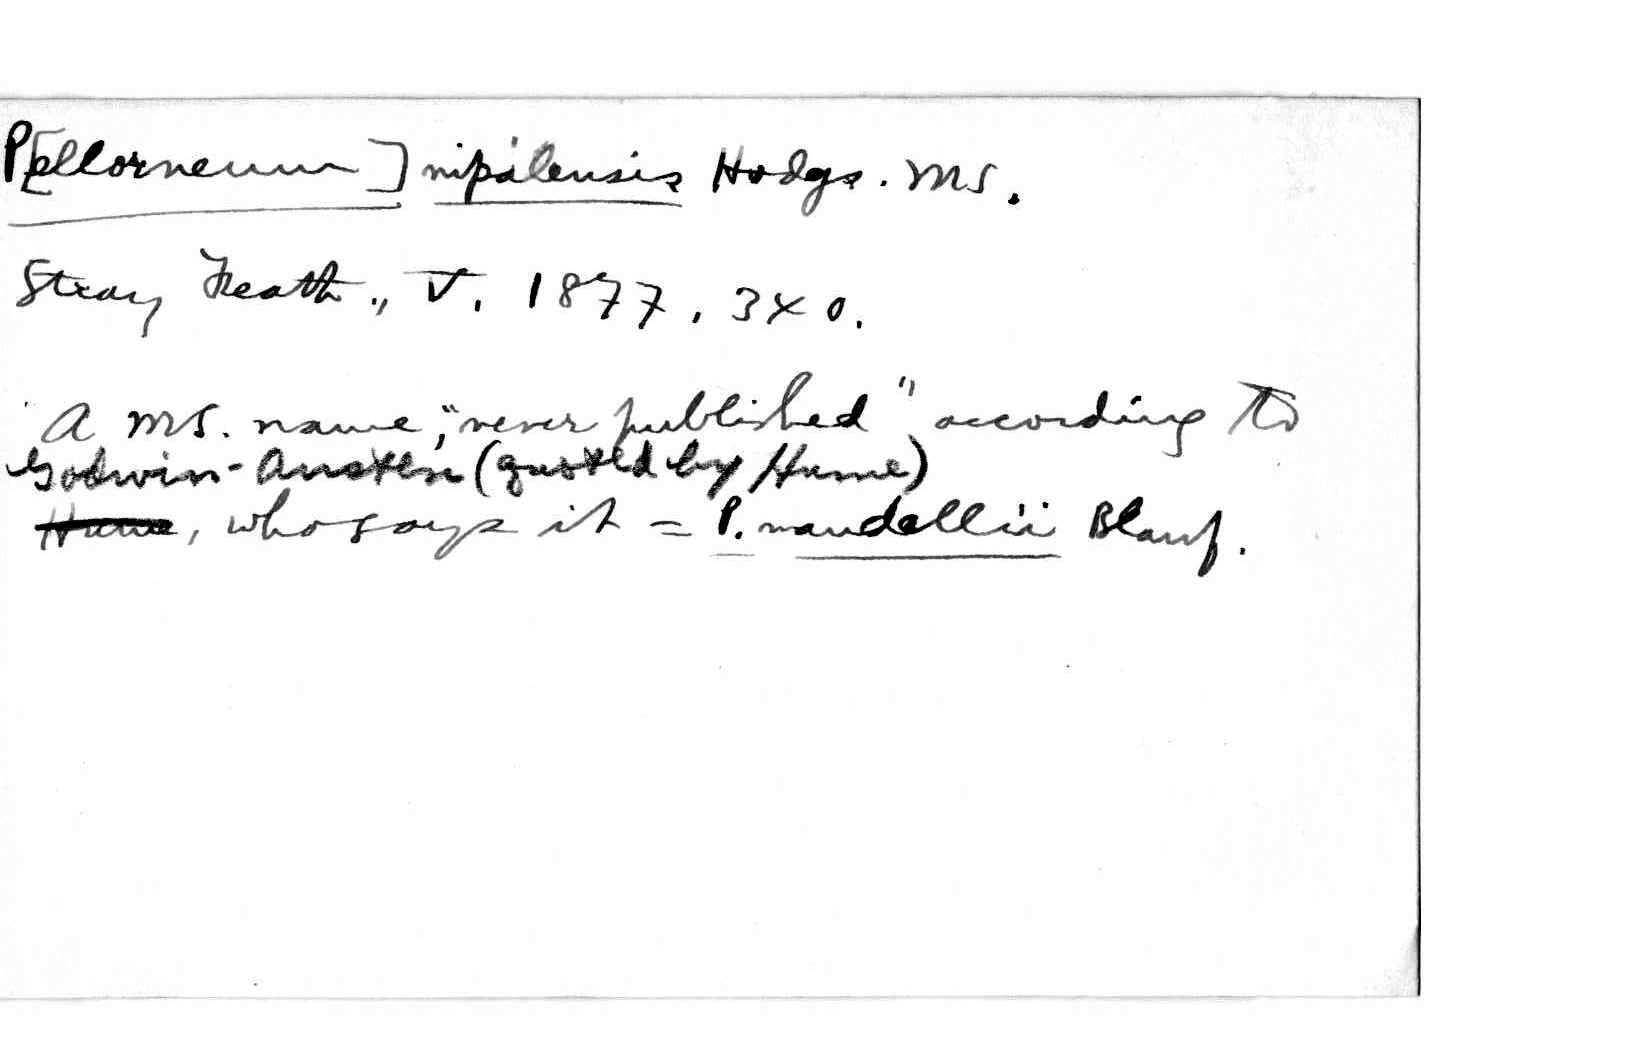 P[ellorneum] nipalensis Hodgs. MS.
Stray Feath., V. 1877, 340.
A MS. name, "never published" according to
Godwin-Austen (quoted by Hume)
Hume, who says it = P. mandellii Blanf.